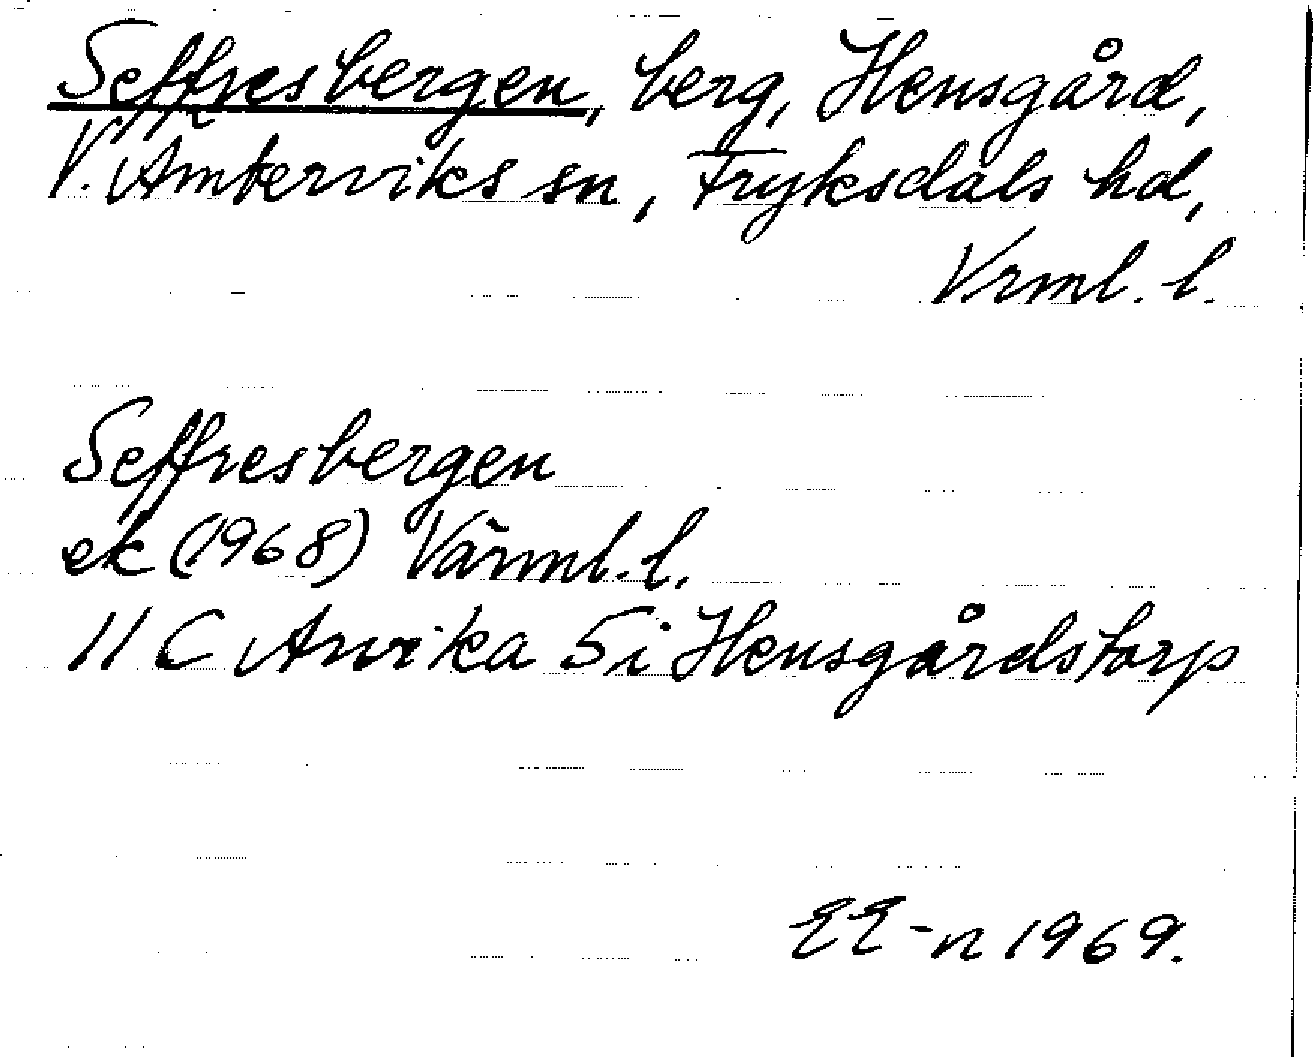 Seffresbergen, berg, Hensgård,
V. Ämterviks sn, Fryksdals hd,
Vrml. l.
Seffresbergen
ek (1968) Värml. l.
11 C Arvika 5 i Hensgårdstorp
EE-n 1969.